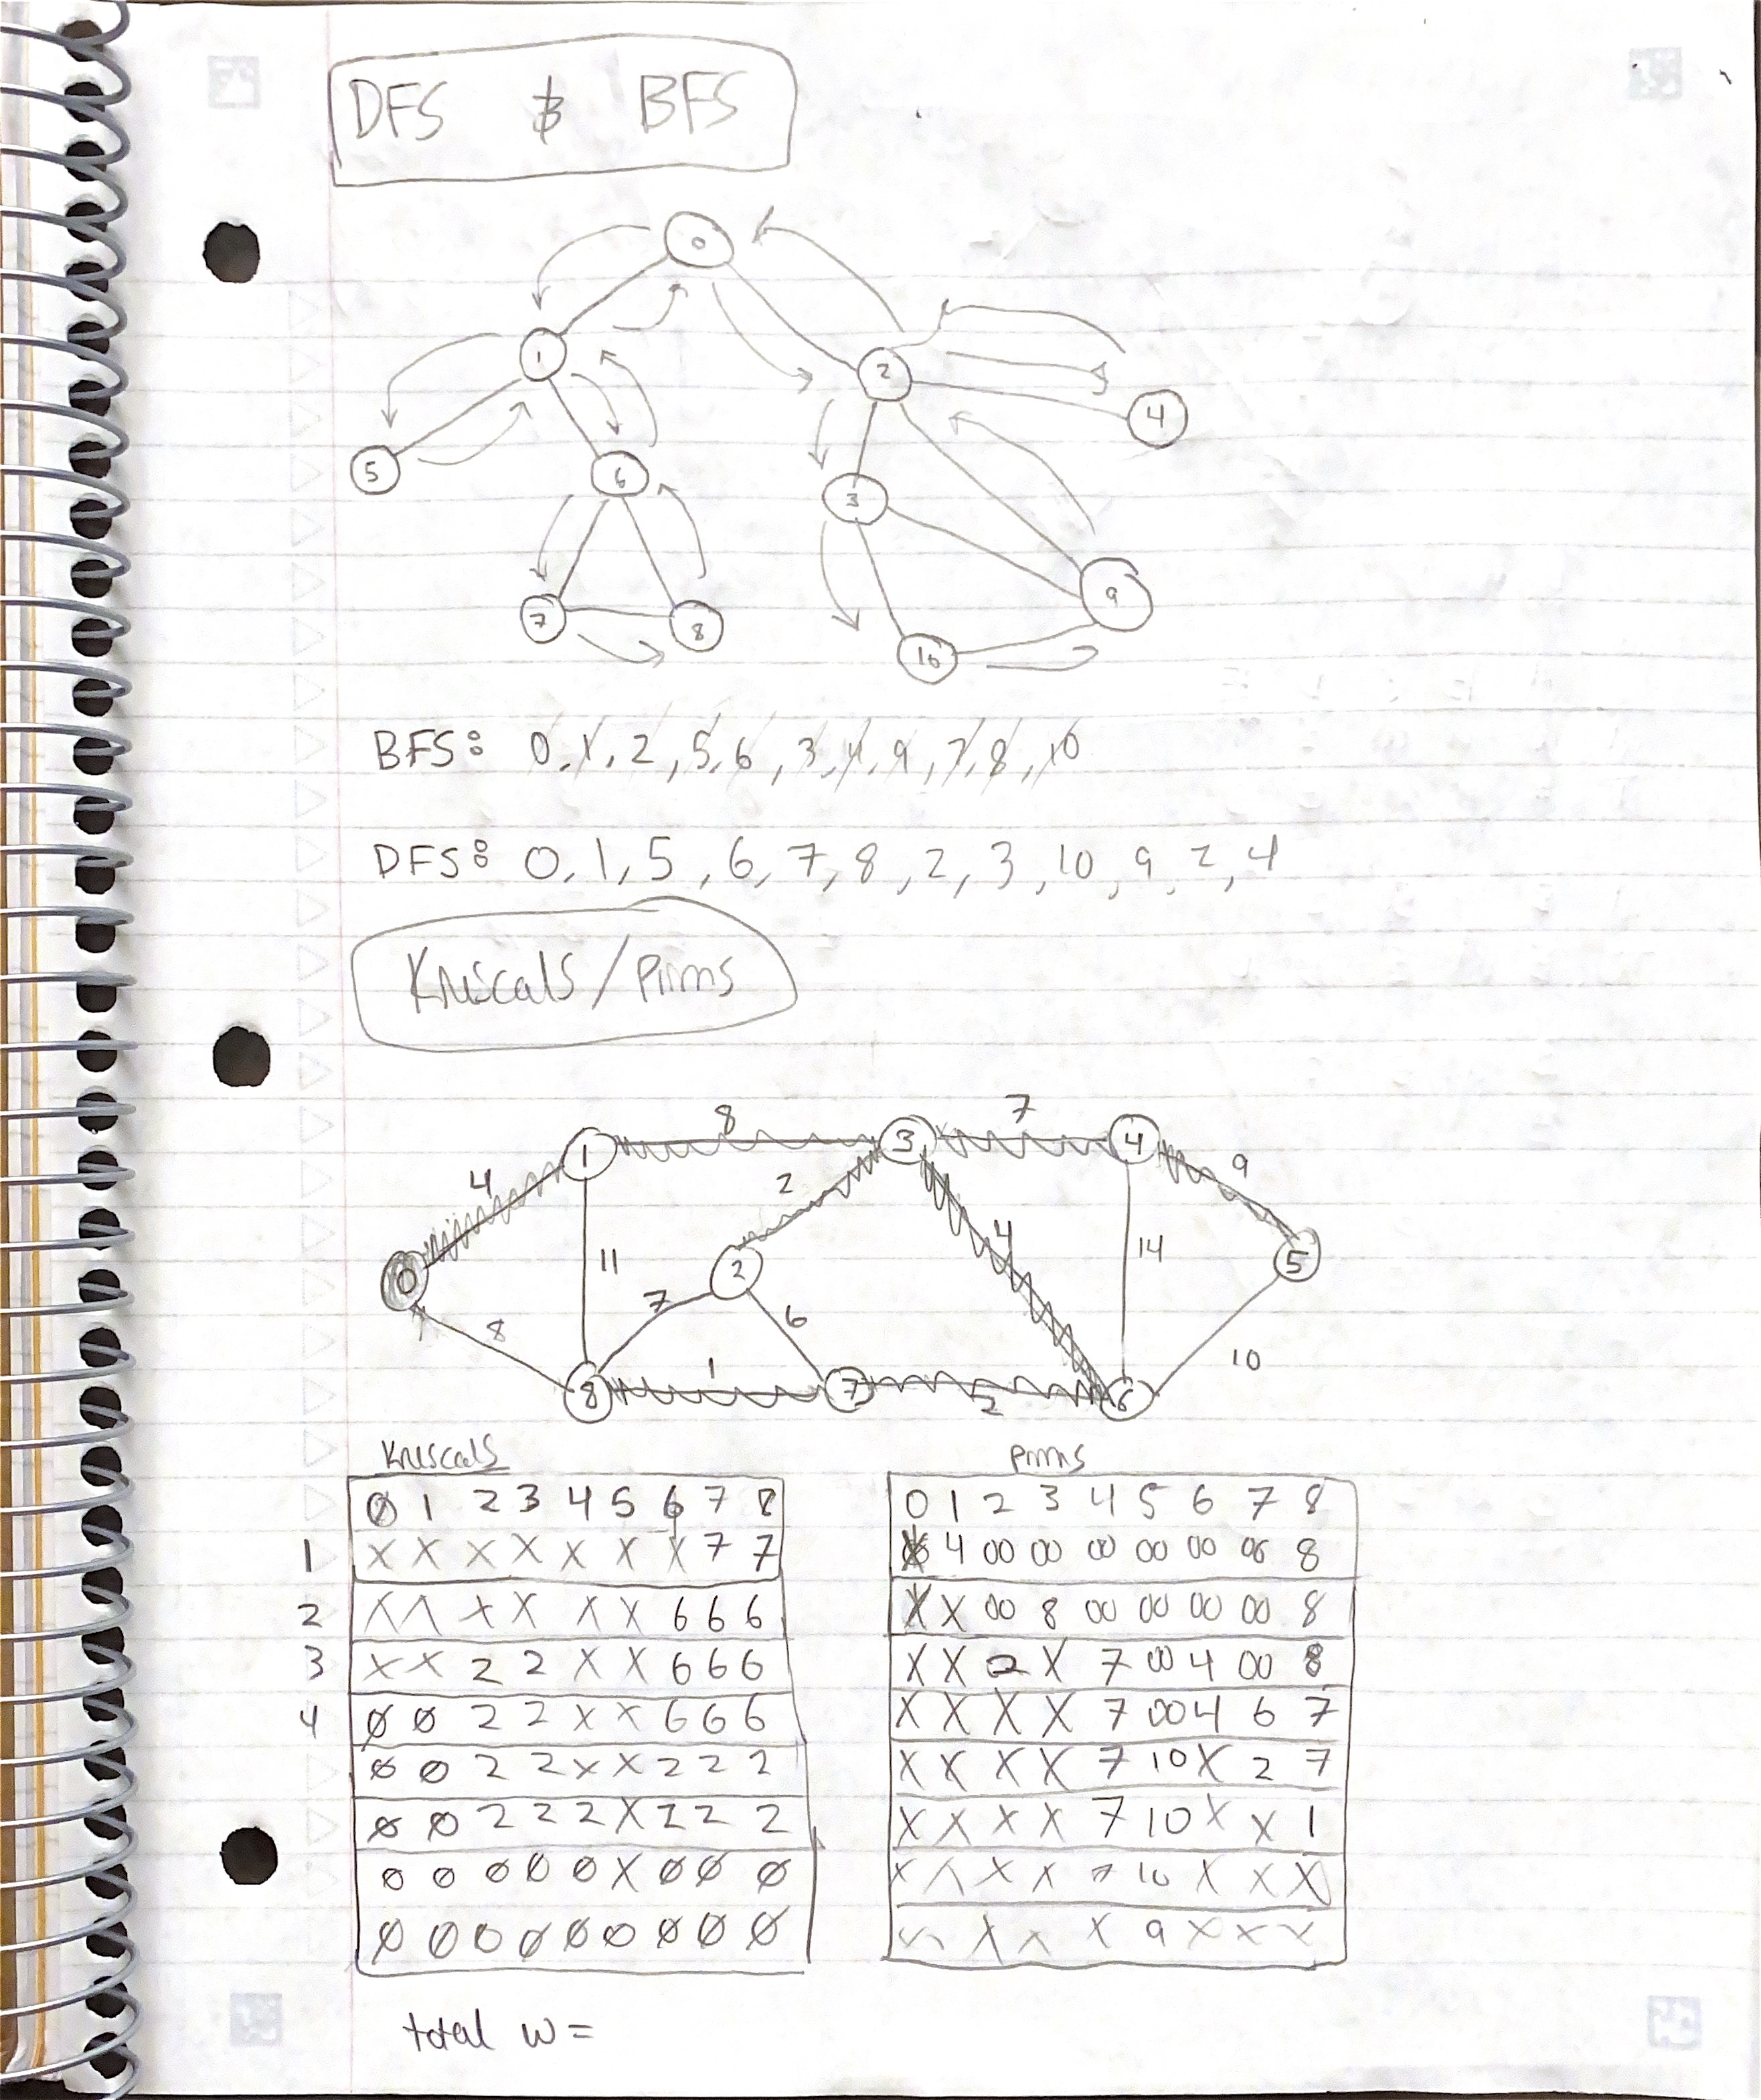 DFS & BFS
0
1
2
4
5
6
3
7
8
9
10
BFS: 0, 1, 2, 5, 6, 3, 4, 9, 7, 8, 10
DFS: 0, 1, 5, 6, 7, 8, 2, 3, 10, 9, 2, 4
Kruscals / Prims
8 7
1 3 4
4 2 9
0 11 2 4 14 5
8 7 6
1 10
8 7 2 6
Kruscals
0 1 2 3 4 5 6 7 8
1 X X X X X X X 7 7
2 X X X X X X 6 6 6
3 X X 2 2 X X 6 6 6
4 0 0 2 2 X X 6 6 6
0 0 2 2 X X 2 2 2
0 0 2 2 2 X 2 2 2
0 0 0 0 0 X 0 0 0
0 0 0 0 0 0 0 0 0
Prims
0 1 2 3 4 5 6 7 8
4 ∞ ∞ ∞ ∞ ∞ ∞ 8
X X ∞ 8 ∞ ∞ ∞ ∞ 8
X X 2 X 7 ∞ 4 ∞ 8
X X X X 7 ∞ 4 6 7
X X X X 7 10 X 2 7
X X X X 7 10 X X 1
X X X X 7 10 X X X
X X X 9 X X X
total w =